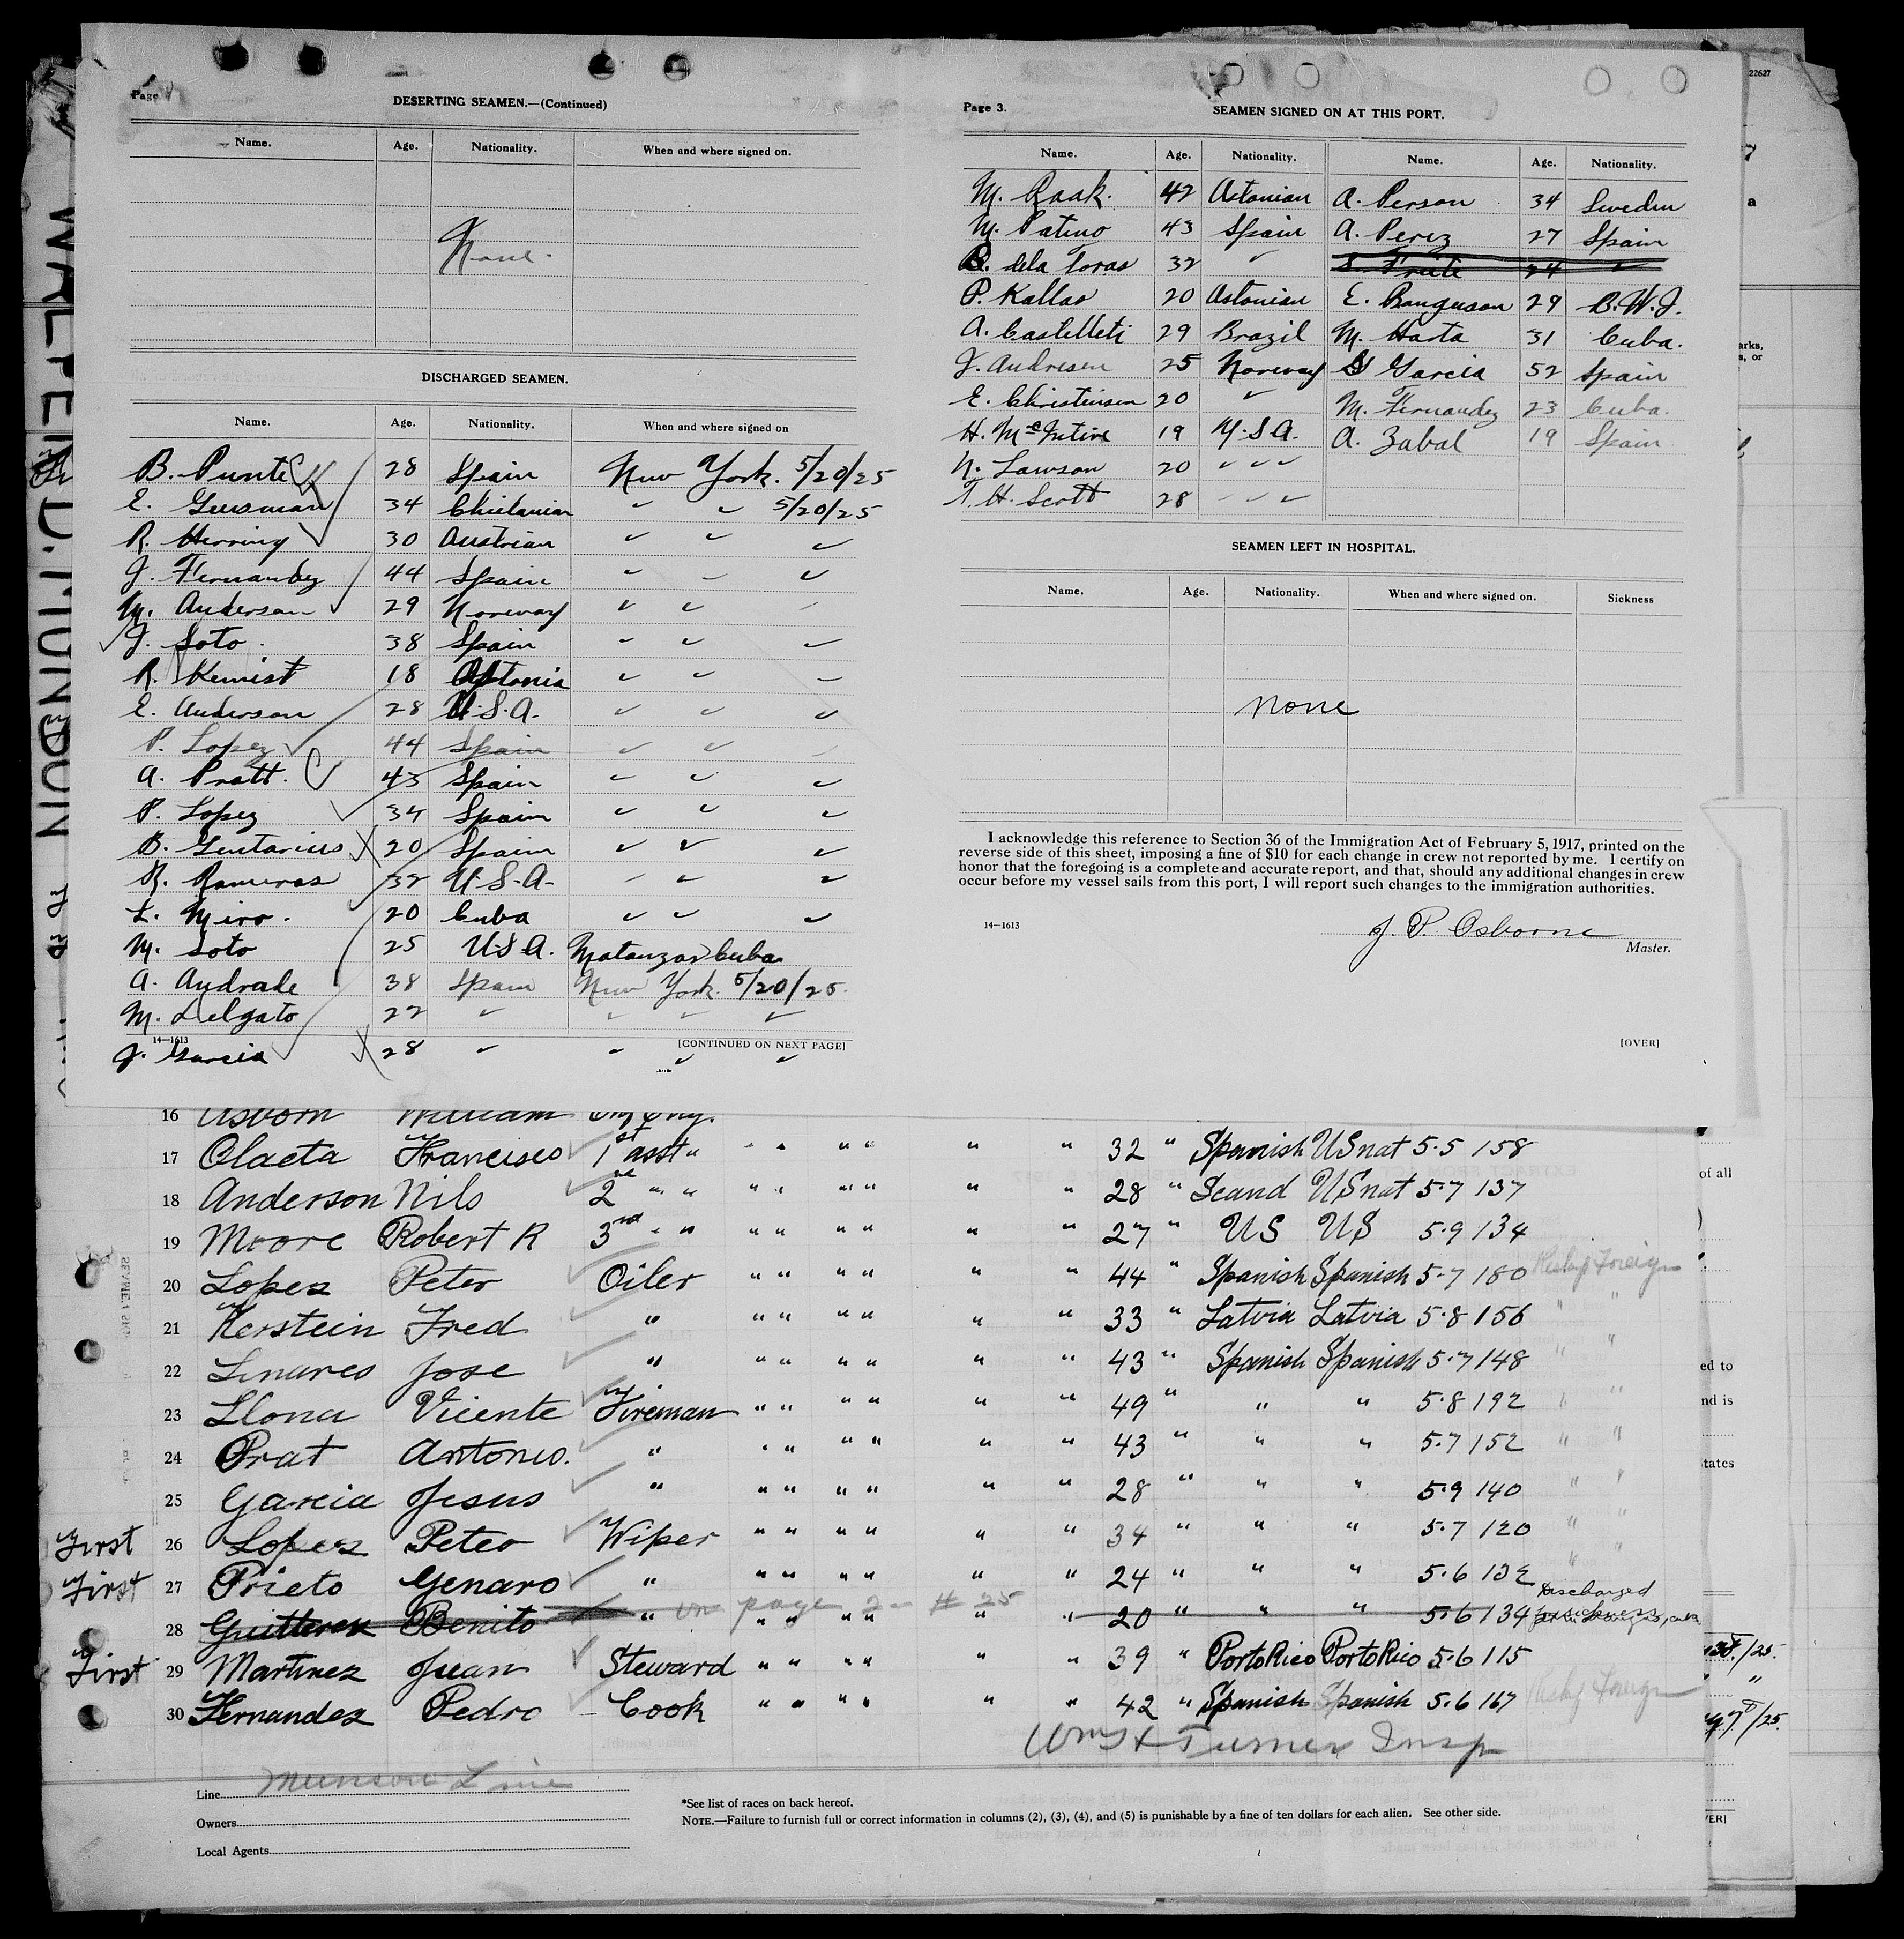 Page
DESERTING SEAMEN.—(Continued)
Name. Age. Nationality. When and where signed on.
None.
DISCHARGED SEAMEN.
Name. Age. Nationality. When and where signed on
B. Punte 28 Spain New York. 5/20/25
E. Gusman 34 Chielanian " " 5/20/25
R. Herring 30 Austrian " " "
J. Fernandez 44 Spain " " "
M. Anderson 29 Norway " " "
J. Soto. 38 Spain " " "
R. Kemist 18 Astonia " " "
E. Anderson 28 U.S.A. " " "
P. Lopez 44 Spain " " "
A. Pratt. 43 Spain " " "
P. Lopez 34 Spain " " "
B. 20 Spain " " "
R. Rameras 32 U.S.A. " " "
L. Miro. 20 Cuba " " "
M. Soto 25 U.S.A. Matanzas Cuba
A. Andrade 38 Spain New York. 5/20/25.
M. Delgato 22 " " " "
14—1613
[CONTINUED ON NEXT PAGE]
J. Garcia 28 " " " "
Page 3.
SEAMEN SIGNED ON AT THIS PORT.
Name. Age. Nationality. Name. Age. Nationality.
M. Raak. 42 Astonian A. Person 34 Sweden
M. Patino 43 Spain A. Perez 27 Spain
B. dela Toras 32 " 24 "
P. Kallas 20 Astonian E. Banguson 29 B.W.I.
A. Castelleti 29 Brazil M. Harta 31 Cuba.
J. Andresen 25 Norway S Garcia 52 Spain
E. Christensen 20 " M. Fernandez 23 Cuba.
H. McIntire 19 U.S.A. A. Zabal 19 Spain
N. Lawson 20 " " "
T. H. Scott 28 " " "
SEAMEN LEFT IN HOSPITAL.
Name. Age. Nationality. When and where signed on. Sickness
none
I acknowledge this reference to Section 36 of the Immigration Act of February 5, 1917, printed on the
reverse side of this sheet, imposing a fine of $10 for each change in crew not reported by me. I certify on
honor that the foregoing is a complete and accurate report, and that, should any additional changes in crew
occur before my vessel sails from this port, I will report such changes to the immigration authorities.
14—1613
J. P. Osborne
Master.
[OVER]
16 Osborn William
17 Olaeta Francisco 1st asst " " " " " " " 32 " Spanish US nat 5.5 158
18 Anderson Nils 2nd " " " " " " " " 28 " Scand US nat 5.7 137
19 Moore Robert R 3rd " " " " " " " " 27 " US US 5.9 134
20 Lopez Peter Oiler " " " " " " 44 " Spanish Spanish 5.7 180 Foreign
21 Kerstein Fred " " " " " " " 33 " Latvia Latvia 5.8 156 " "
22 Linares Jose " " " " " " " 43 " Spanish Spanish 5.7 148 " "
23 Llona Vicente Fireman " " " " " " 49 " " " 5.8 192 " "
24 Prat Antonio. " " " " " " " 43 " " " 5.7 152 " "
25 Garcia Jesus " " " " " " " 28 " " " 5.9 140 " "
First 26 Lopez Peter Wiper " " " " " " 34 " " " 5.7 120 " "
First 27 Prieto Genaro " " " " " " " 24 " " " 5.6 132 " "
28 Guitterez Benito " on page 2 - # 25 " " 20 " " " 5.6 134 Discharged
First 29 Martinez Juan Steward " " " " " " 39 " Porto Rico Porto Rico 5.6 115
30 Hernandez Pedro Cook " " " " " " 42 " Spanish Spanish 5.6 167 Foreign
Wm Turner Insp
Line Munson Line
Owners
Local Agents
*See list of races on back hereof.
NOTE.—Failure to furnish full or correct information in columns (2), (3), (4), and (5) is punishable by a fine of ten dollars for each alien. See other side.
22627
a
arks,
s, or
of all
ed to
nd is
tates
/25.
"
/25.
VER]
WALTER D. MUNSON